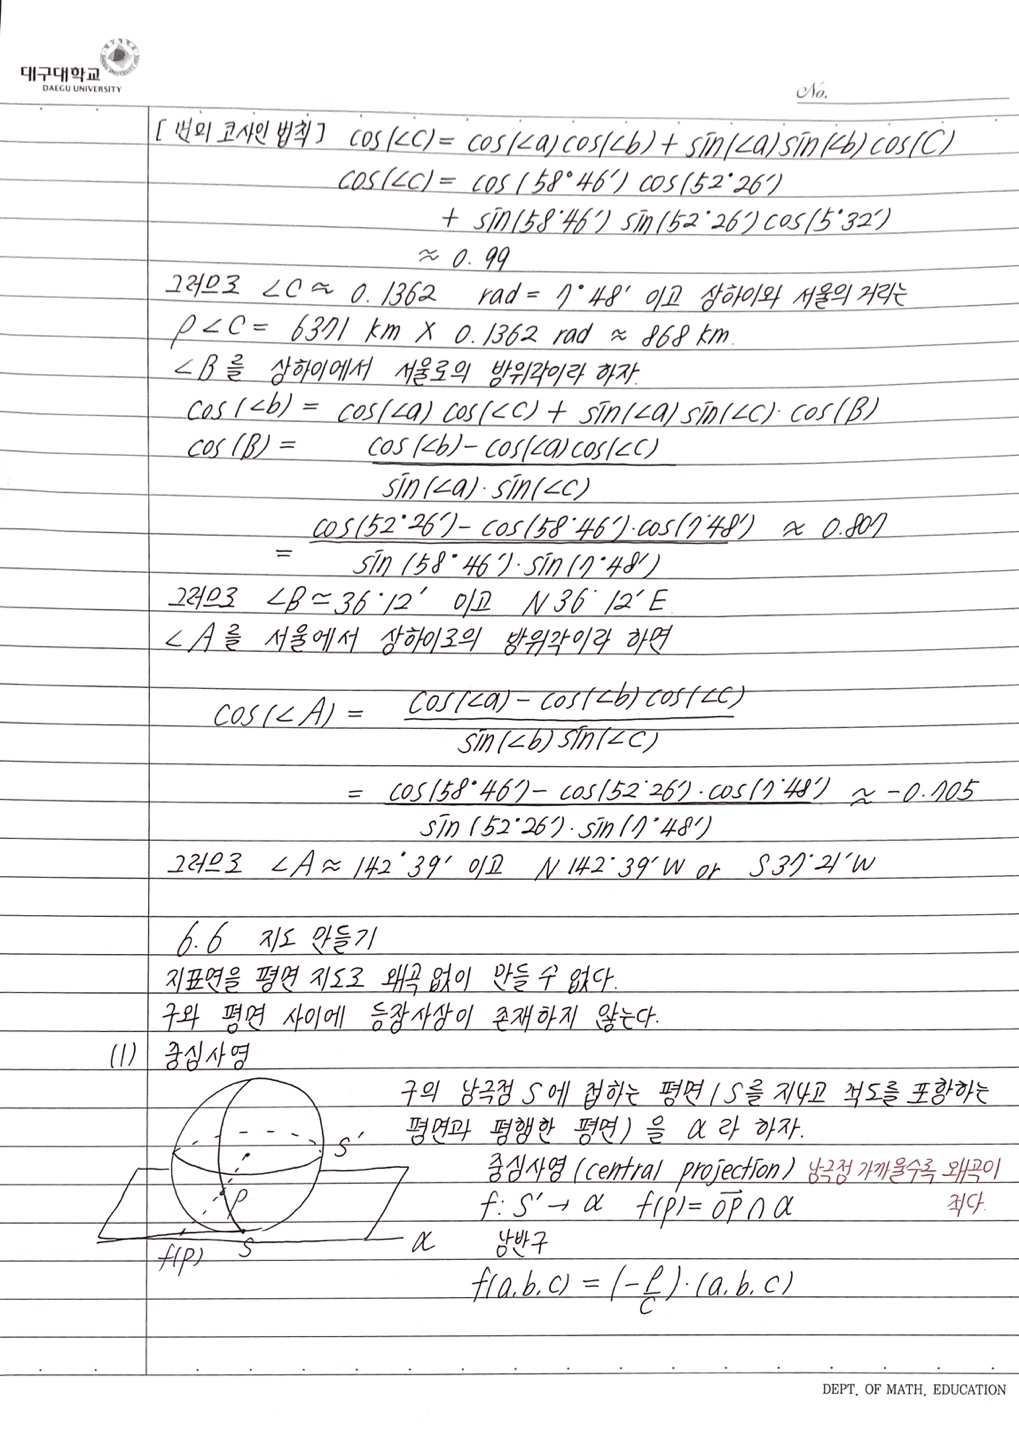 대구대학교
DAEGU UNIVERSITY
No.
[변의 코사인 법칙] cos(∠c) = cos(∠a)cos(∠b) + sin(∠a)sin(∠b)cos(C)
cos(∠c) = cos(58°46′) cos(52°26′)
+ sin(58°46′) sin(52°26′) cos(5°32′)
≈ 0.99
그러므로 ∠C ≈ 0.1362 rad = 7°48′ 이고 상하이와 서울의 거리는
ρ∠C = 6371 km × 0.1362 rad ≈ 868 km.
∠B를 상하이에서 서울로의 방위각이라 하자.
cos(∠b) = cos(∠a) cos(∠c) + sin(∠a) sin(∠c)·cos(B)
cos(B) = cos(∠b) - cos(∠a)cos(∠c)
sin(∠a)·sin(∠c)
= cos(52°26′) - cos(58°46′)·cos(7°48′) ≈ 0.807
sin(58°46′)·sin(7°48′)
그러므로 ∠B ≃ 36°12′ 이고 N 36°12′ E
∠A를 서울에서 상하이로의 방위각이라 하면
cos(∠A) = cos(∠a) - cos(∠b) cos(∠c)
sin(∠b) sin(∠c)
= cos(58°46′) - cos(52°26′)·cos(7°48′) ≈ -0.705
sin(52°26′)·sin(7°48′)
그러므로 ∠A ≈ 142°39′ 이고 N 142°39′ W or S 37°21′ W
6.6 지도 만들기
지표면을 평면 지도로 왜곡 없이 만들 수 없다.
구와 평면 사이에 등장사상이 존재하지 않는다.
(1) 중심사영
구의 남극점 S에 접하는 평면(S를 지나고 적도를 포함하는
평면과 평행한 평면)을 α라 하자.
중심사영(central projection) 남극점 가까울수록 왜곡이
적다.
f: S′ → α f(p) = OP ∩ α
남반구
f(a,b,c) = (-ρ/c)·(a,b,c)
S′
P
f(p)
S
α
DEPT. OF MATH. EDUCATION